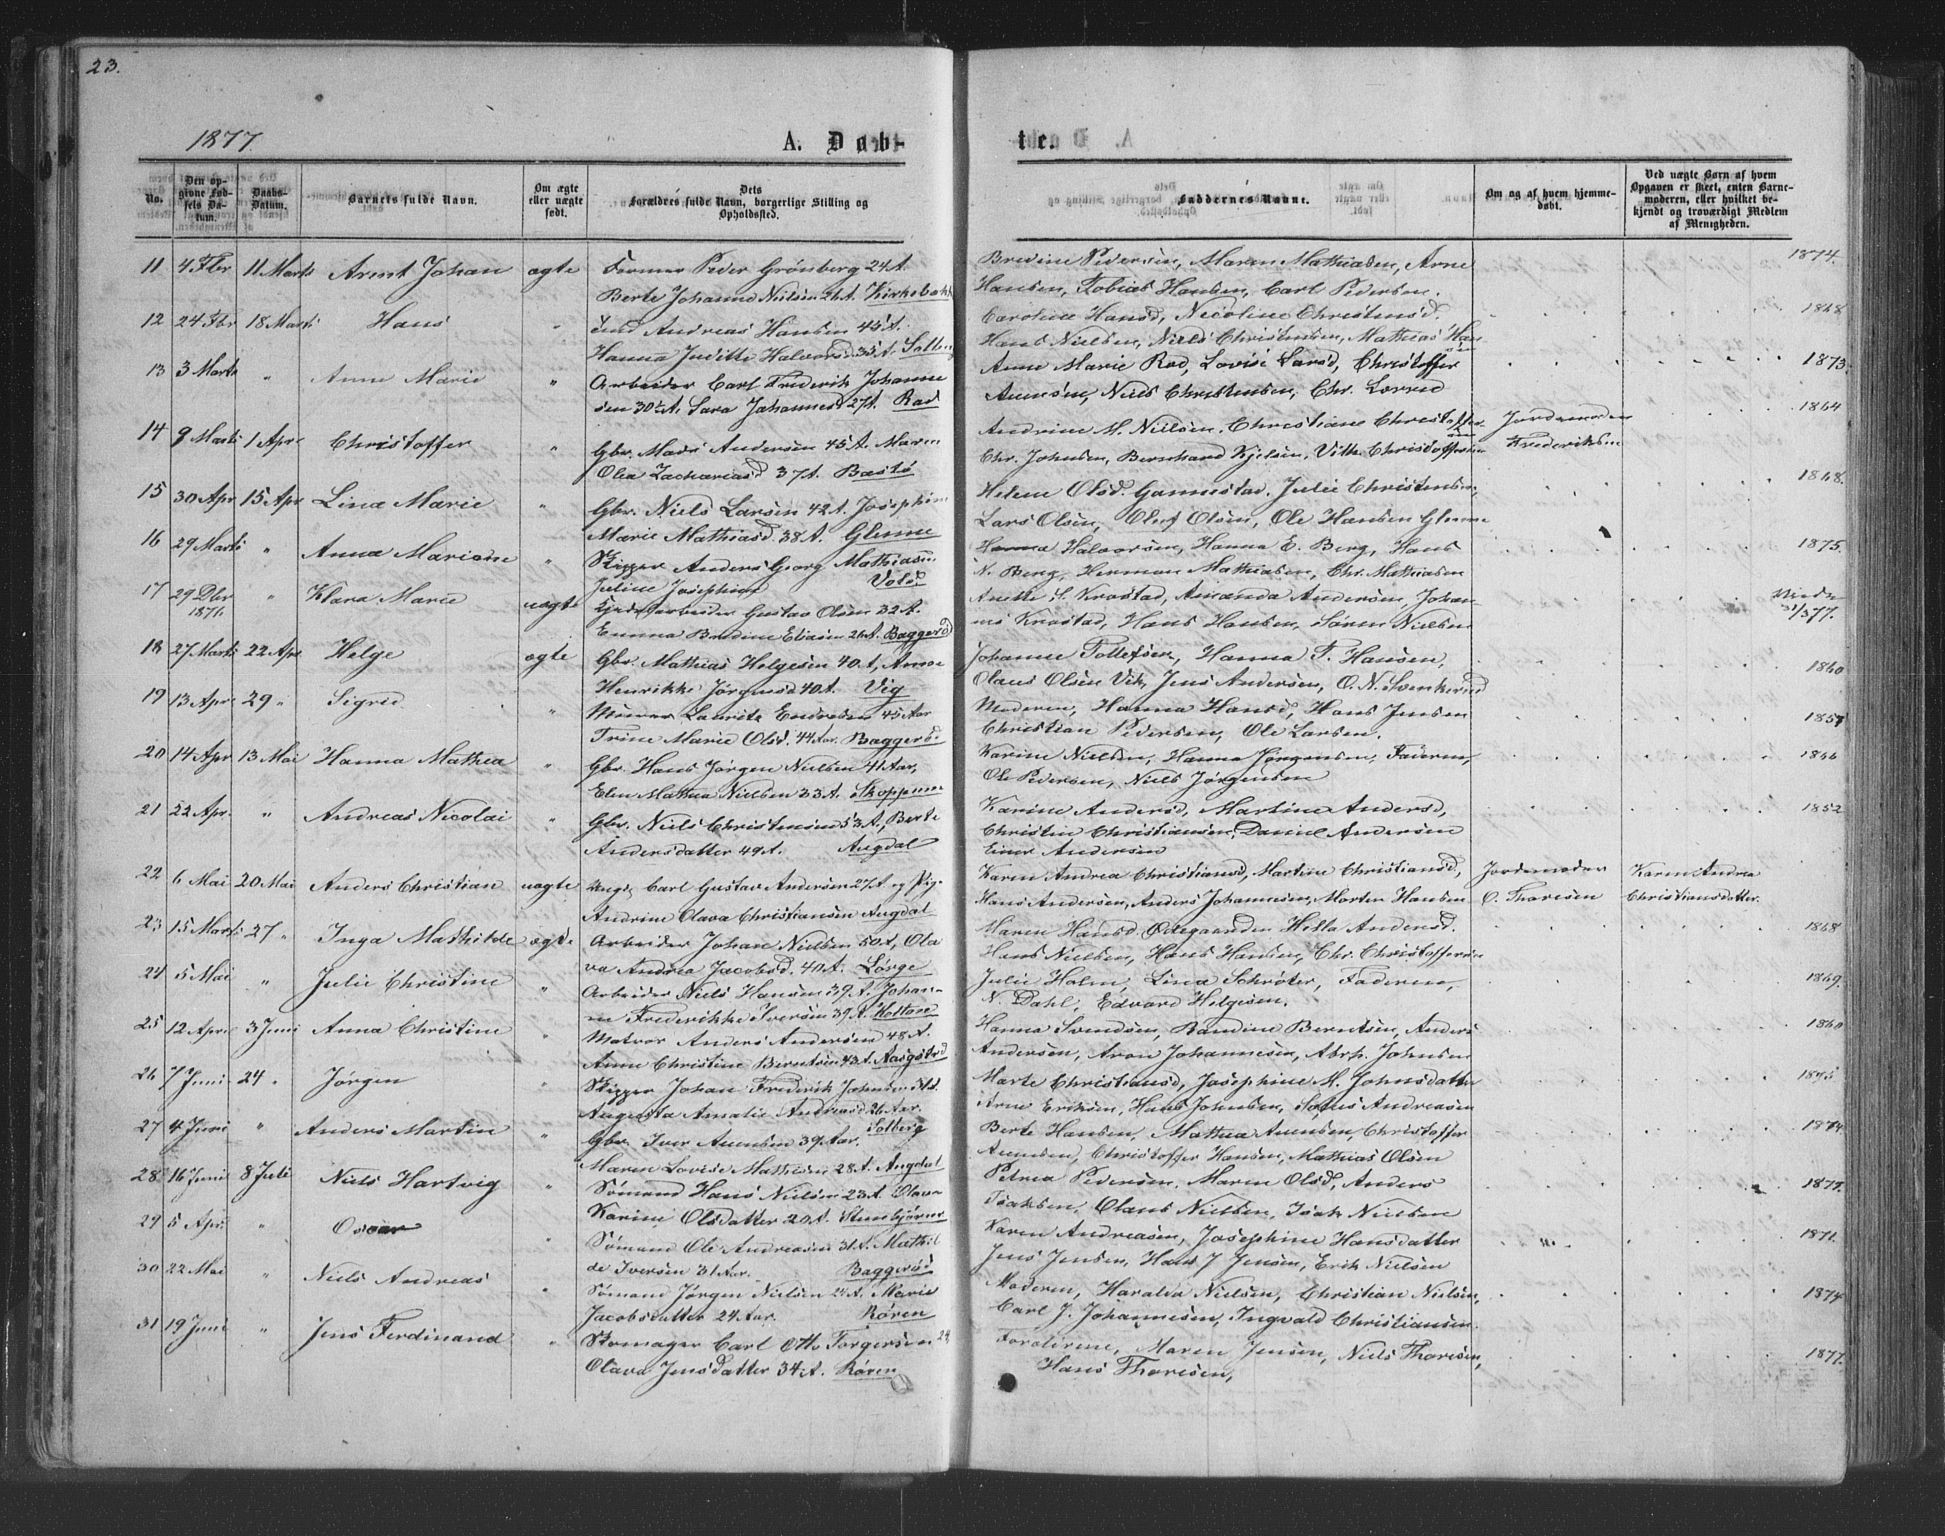 23.
1877.
A. Døb-
te.
No.
Den op-
givne Fød-
sels Da-
tum.
Daabs-
Datum.
Barnets fulde Navn.
Om ægte
eller uægte
født.
Dets
Forældres fulde Navn, borgerlige Stilling og
Opholdssted.
Faddernes Navne.
Om og af hvem hjemme-
døbt.
Ved uægte Børn af hvem
Opgaven er skeet, enten Barne-
moderen, eller hvilket be-
kjendt og troværdigt Medlem
af Menigheden.
11 4 Fbr 11 Marts Arent Johan ægte Former Peder Grønberg 24 A.
Berte Johanne Nielsen 26 A. Kirkebakk
Bredine Pedersen, Maren Mathiasen, Arne
Hansen, Tobias Hansen, Carl Pedersen.
1874.
12 24 Fbr 18 Marts Hans " Andreas Hansen 45 A.
Hanna Juditte Halvorsd 35 A. Solberg
Caroline Hansd, Nicoline Christensd.
Hans Nielsen, Niels Christensen, Mathias Han
sen
1868
13 3 Marts " Anne Marie " Arbeider Carl Frederik Johanne
sen 30½ A. Sara Johannesd 27 A. Rød
Anne Marie Rød, Lovise Larsd, Christoffer
Aunsøn, Niels Christensen, Chr.
1873.
14 9 Marts 1 Apr. Christoffer " Gbr. Mads Andersen 45 A. Maren
Olea Zachariasd 37 A. Bastø
Andrine M. Nielsen, Christiane Christoffer
sen
Chr. Johnsen, Bernhard Kjelsen, Vilh. Christoffersen
Jordemoder
Frederiksen
1864
15 30 Apr 15 Apr Lina Marie " Gbr. Niels Larsen 42 A. Josephine
Marie Mathiasd. 38 A. Glenne
Helene Olsd. Gannestad, Julie Christensen,
Lars Olsen, Oluf Olsen, Ole Hansen Glenne
1868.
16 29 Marts " Anna Mariane " Skipper Anders Georg Mathiasen
Juline Josephine Vold
Hanna Halvorsen, Hanna E. Berg, Hans
N. Berg, Herman Mathiasen, Chr. Mathiasen
1875.
17 29 Dbr
1876. " Klara Marie uægte arbeider Gustav Olsen 32 A.
Emma Bredine Eliasen 26 A. Baggerød
Anette S. Krostad, Amanda Andersen, Johan
nes Krostad, Hans Hansen, Søren Nielsen
31/3 77.
18 27 Marts 22 Apr. Helge ægte Gbr. Mathias Helgesen 40 A, Anne
Henrikke Jørgensd 40 A. Vig
Johanne Tollefsen, Hanna T. Hansen,
Olaus Olsen Vik, Jens Andersen, O. N. Svenkerud
1860
19 13 Apr. 29 " Sigrid " Murer Laurits Endresen 45 Aar
Trine Marie Olsd. 44 Aar. Baggerød
Moderen, Hanna Hansd, Hans Jensen
Christian Pedersen, Ole Larsen.
1857
20 14 Apr 13 Mai Hanna Mathea " Gbr. Hans Jørgen Nielsen 41 Aar,
Elen Mathea Nielsen 33 A. Skoppum
Karine Nielsen, Hanna Jørgensen, Faderen,
Ole Pedersen, Niels Jørgensen
1866
21 22 Apr. " Andreas Nicolai " Gbr. Niels Christensen 53 A, Berte
Andersdatter 49 A. Augdal
Karine Andersd, Martine Andersd,
Christen Christiansen, Daniel Andersen
Einer Andersen
1852
22 6 Mai 20 Mai Anders Christian uægte Ungk. Carl Gustav Andersen 27 A og Pige
Andrine Olava Christiansen Augdal
Karen Andrea Christiansd, Martine Christiansd,
Hans Andersen, Anders Johannesen, Morten Hansen
Jordemoder
O. Thoresen
Karen Andrea
Christiansdatter.
23 15 Marts 27 " Inga Mathilde ægte Arbeider Johan Nielsen 50 A, Ola
va Andrea Jacobsd. 40 A. Lørge
Maren Hansd Ødegaarden Hella Andersd.
Hans Nielsen, Hans Hansen, Chr. Christoffersen
1868
24 5 Mai " Julie Christine " Arbeider Niels Hansen 39 A. Johan-
ne Frederikke Iversen 39 A. Holtane
Julie Holm, Lina Schrøter, Faderen,
N. Dahl, Edvard Helgesen.
1869.
25 12 Apr. 3 Juni Anna Christine " Matros Anders Andersen 48 A.
Anne Christine Berntsen 43 A. Aasgstrd
Hanna Svendsen, Randine Berntsen, Anders
Andersen, Aron Johannesen, Abrh. Johnsen
1860
26 7 Juni 24 " Jørgen " Skipper Johan Frederik Johnsen
Augusta Amalie Andreasd 26 Aar.
Solberg
Marte Christiansd, Josephine M. Johnsdatter
Arne Eriksen, Hans Johnsen, Sofus Andreasen
1875
27 4 Juni " Anders Martin " Gbr. Iver Aunsen 39 Aar.
Maren Lovise Mathisen 28 A. Augdal
Berte Hansen, Mathea Aunsen, Christoffer
Aunsen, Christoffer Hansen, Mathias Olsen
1874.
28 16 Juni 8 Juli Niels Hartvig " Sømand Hans Nielsen 23 A. Olava
Karine Olsdatter 20 A. Stensbjørnr
Petrea Pedersen, Maren Olsd, Anders
Isaksen, Olaus Nielsen, Isak Nielsen
1877.
29 5 Apr. " Oscar " Sømand Ole Andreasen 31 A. Mathil
de Iversen 31 Aar. Baggerød
Karen Andreasen, Josephine Hansdatter
Jens Jensen, Hans J Jensen, Erik Nielsen
1871.
30 22 Mai " Niels Andreas " Sømand Jørgen Nielsen 24 A. Marie
Jacobsdatter 24 Aar. Røren
Moderen, Haralda Nielsen, Christian Nielsen,
Carl J. Johannesen, Ingvald Christiansen.
1874
31 19 Juni " Jens Ferdinand " Skomager Carl Otto Torgersen 24
Olava Jensdatter 34 A. Røren
Forældrene, Maren Jensen, Niels Thoresen,
Hans Thoresen,
1877.